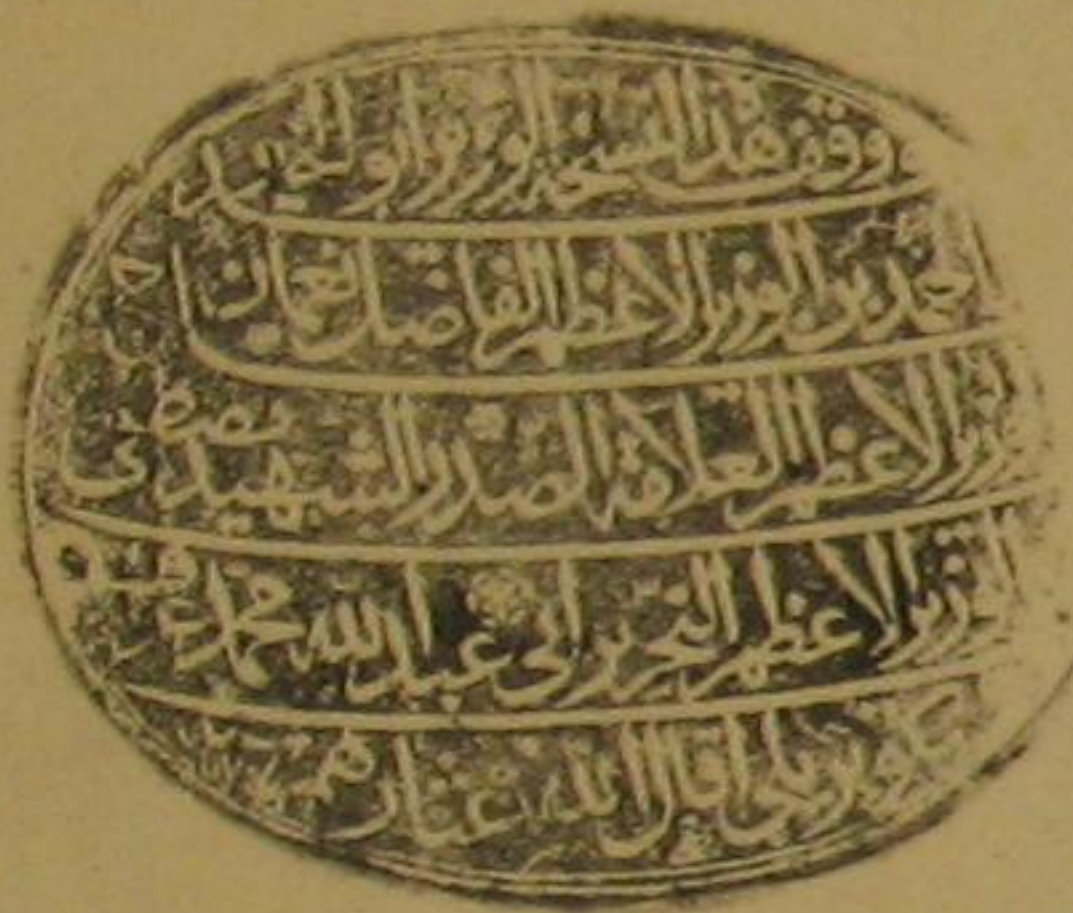 وقف هذا النسخة الوزير ابو الخير
احمد بن الوزير الاعظم الفاضل نعمان بن
الوزير الاعظم العلامة الصدر الشهيد مصطفى بن
الوزير الاعظم النحرير ابي عبد الله محمد عرف
بكوبريلي اقال الله عثارهم